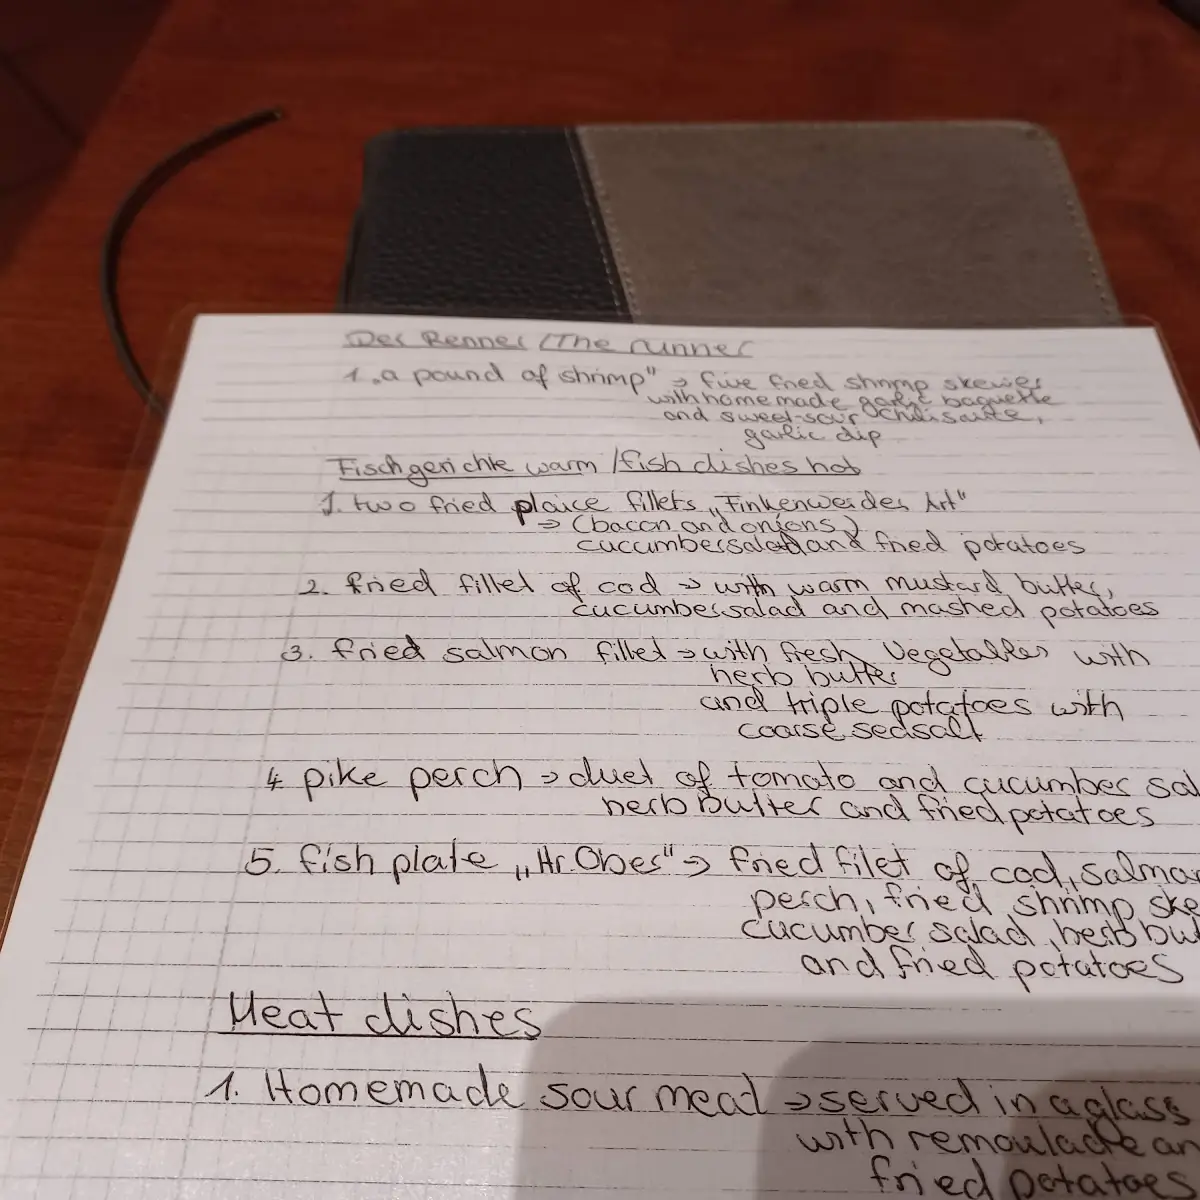 Der Renner / The runner
1. „a pound of shrimp" → five fried shrimp skewer
with homemade garlic baguette
and sweet-sour Chilisauce,
garlic dip
Fischgerichte warm / fish dishes hot
1. two fried plaice fillets „Finkenwerder Art"
→ (bacon and onions)
cucumbersalad and fried potatoes
2. fried fillet of cod → with warm mustard butter,
cucumbersalad and mashed potatoes
3. fried salmon fillet → with fresh Vegetables with
herb butter
and triple potatoes with
coarse seasalt
4. pike perch → duet of tomato and cucumber sal
herb butter and fried potatoes
5. fish plate „Hr. Ober" → fried filet of cod, salmon
perch, fried shrimp ske
cucumber salad, herb but
and fried potatoes
Meat dishes
1. Homemade sour meat → served in a glass
with remoulade an
fried potatoes